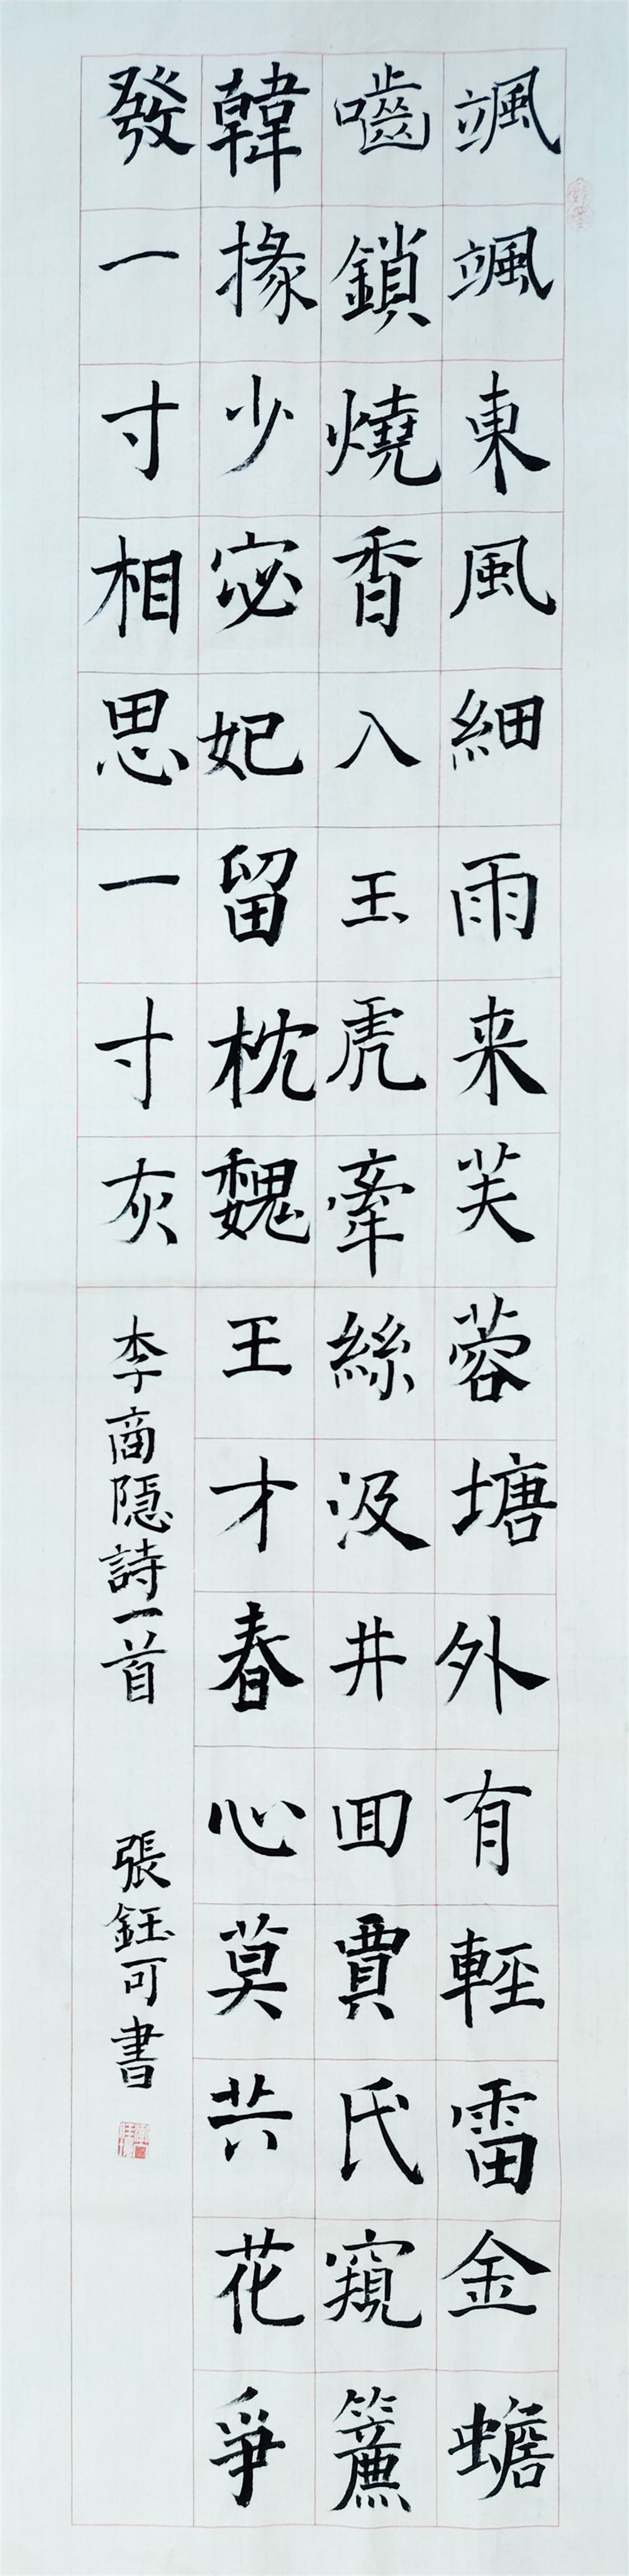 颯颯東風細雨来芙蓉塘外有輕雷金蟾
嚙鎖燒香入玉虎牽絲汲井回賈氏窺簾
韓掾少宓妃留枕魏王才春心莫共花爭
發一寸相思一寸灰
李商隠詩一首 張鈺可書